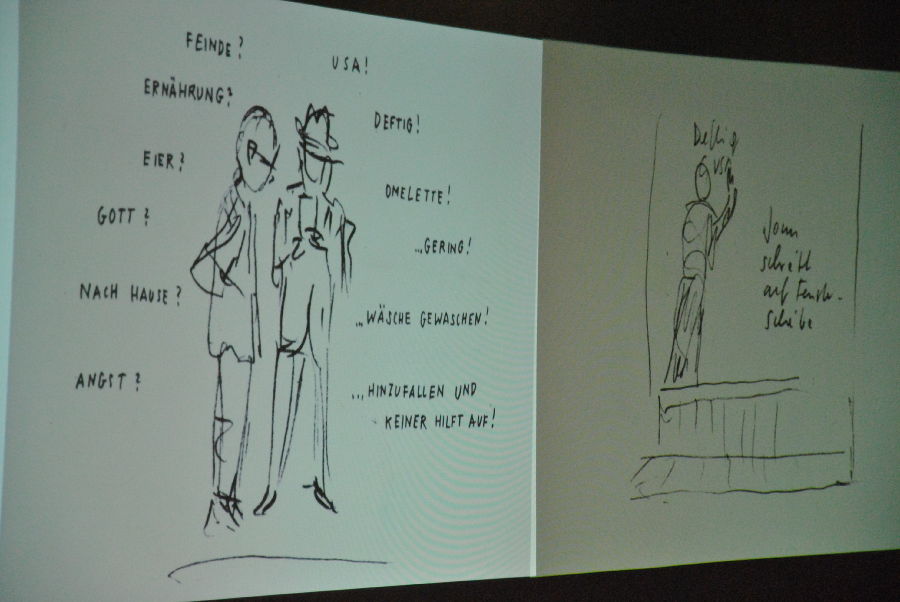 FEINDE?
USA!
ERNÄHRUNG?
DEFTIG!
EIER?
OMELETTE!
GOTT?
...GERING!
NACH HAUSE?
...WÄSCHE GEWASCHEN!
ANGST?
...HINZUFALLEN UND
KEINER HILFT AUF!
Deftig
USA
schreibt
auf Fenster-
scheibe